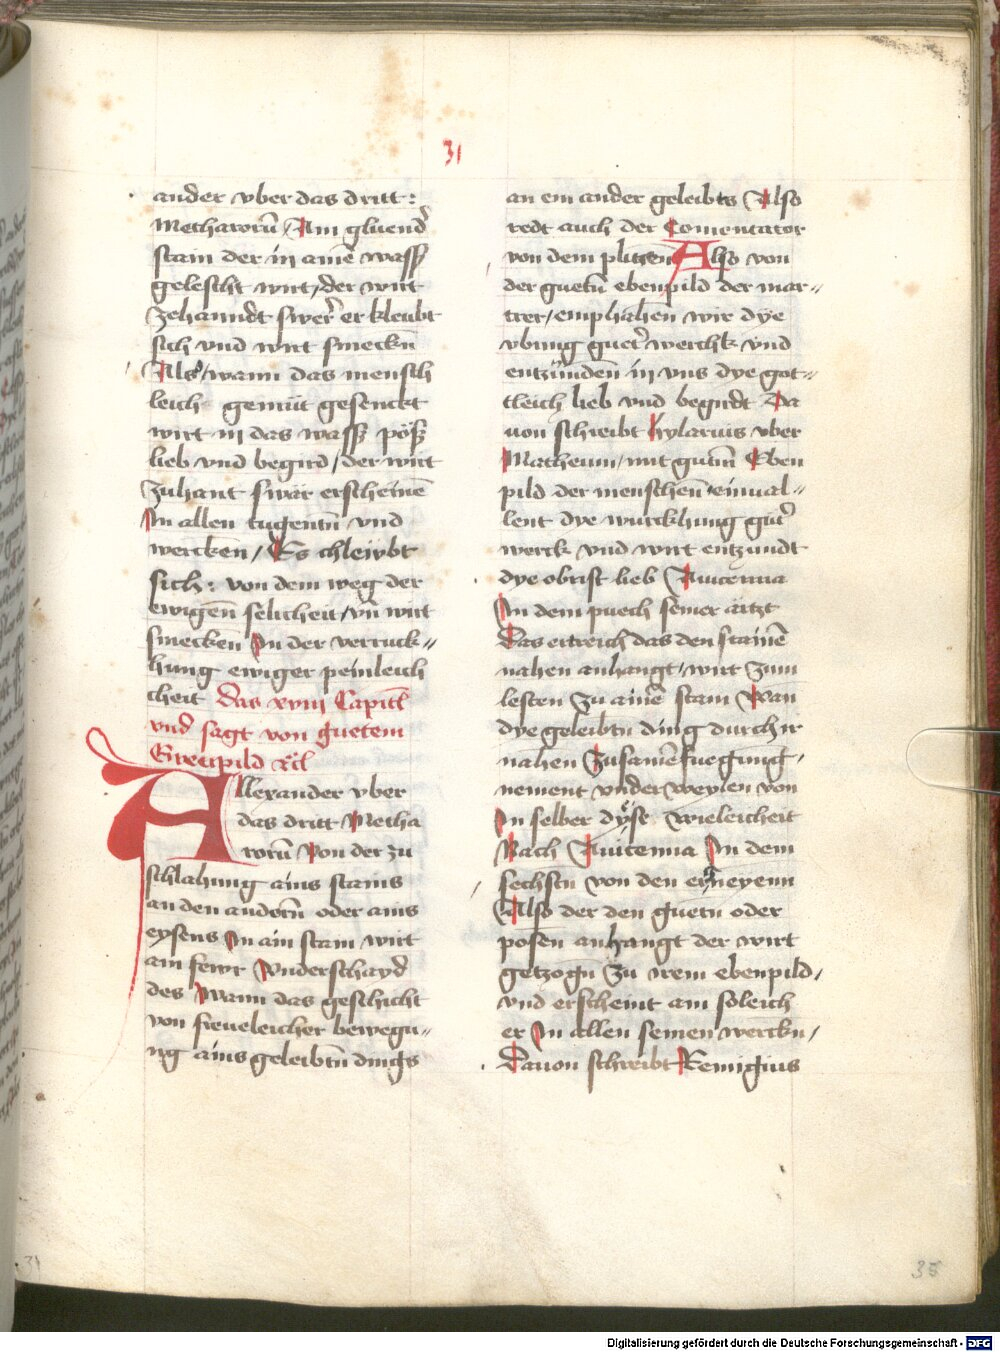 31
ander vber das dritt:
Metharorū Ain gluend̄
stain der in ainē wasß
gelescht wirt/der wirt
zehanndt swer̄ er kleubt
sich vnd wirt smeckn̄
Als/wann das mensch
leich gemüt gesenckt
wirt in das wasß pößß
lieb vnd begird/der wirt
zuhant swär erscheinē
In allen tugentn̄ vnd
wercken/Es chleybt
sich: von dem weg der
ewigen̄ selicheit/vn̄ wirt
smecken In der verruck⸗
hung ewiger peinleich
cheit Das xviij Capitl̄
vnd̄ sagt von guetem
Ebenpild &c̄
Allexander vber
das dritt Metha
rorū Von der zu
schlahung ains stains
an den andern̄ oder ains
eysens In ain stam wirt
ain fewr Vnderschayd̄
des Wann das geschicht
von freueleicher bewegu⸗
ng ains geleibtn̄ dings
an ein ander geleibts Also
redt auch der Comentator
von dem plitzen Also von
der guetn̄ ebenpild der mar⸗
trer/emphahen̄ wir dye
vbung guet̄ werchk vnd
entzünden̄ in vns dye got⸗
tleich lieb vnd begirdt Da
uon schreibt hylarius vber
Matheum/mit gutm̄ Eben
pild der menschen̄ einual⸗
lent dye wurckhung gut̄
werck vnd wirt entzundt
dye obrist lieb Auicenna
In dem puech seiner ärtzt
Das ertreich das den stainē
nahen anhangt/wirt zum
lesten zu ainē stam Wan
dye geleibtn ding durch ir
nahen zusamēfuegung
nement vnderweylen von
In selber dyse wieleicheit
Nach Auicenna In dem
sechstn von den ertzneyenn
Also der den guetn oder
posen anhangt der wirt
getzogn̄ zu irem ebenpild/
vnd erscheint am soleich
er In allen seinen werckn/
Dauon schreibt Remigius
31
35
Digitalisierung gefördert durch die Deutsche Forschungsgemeinschaft - DFG